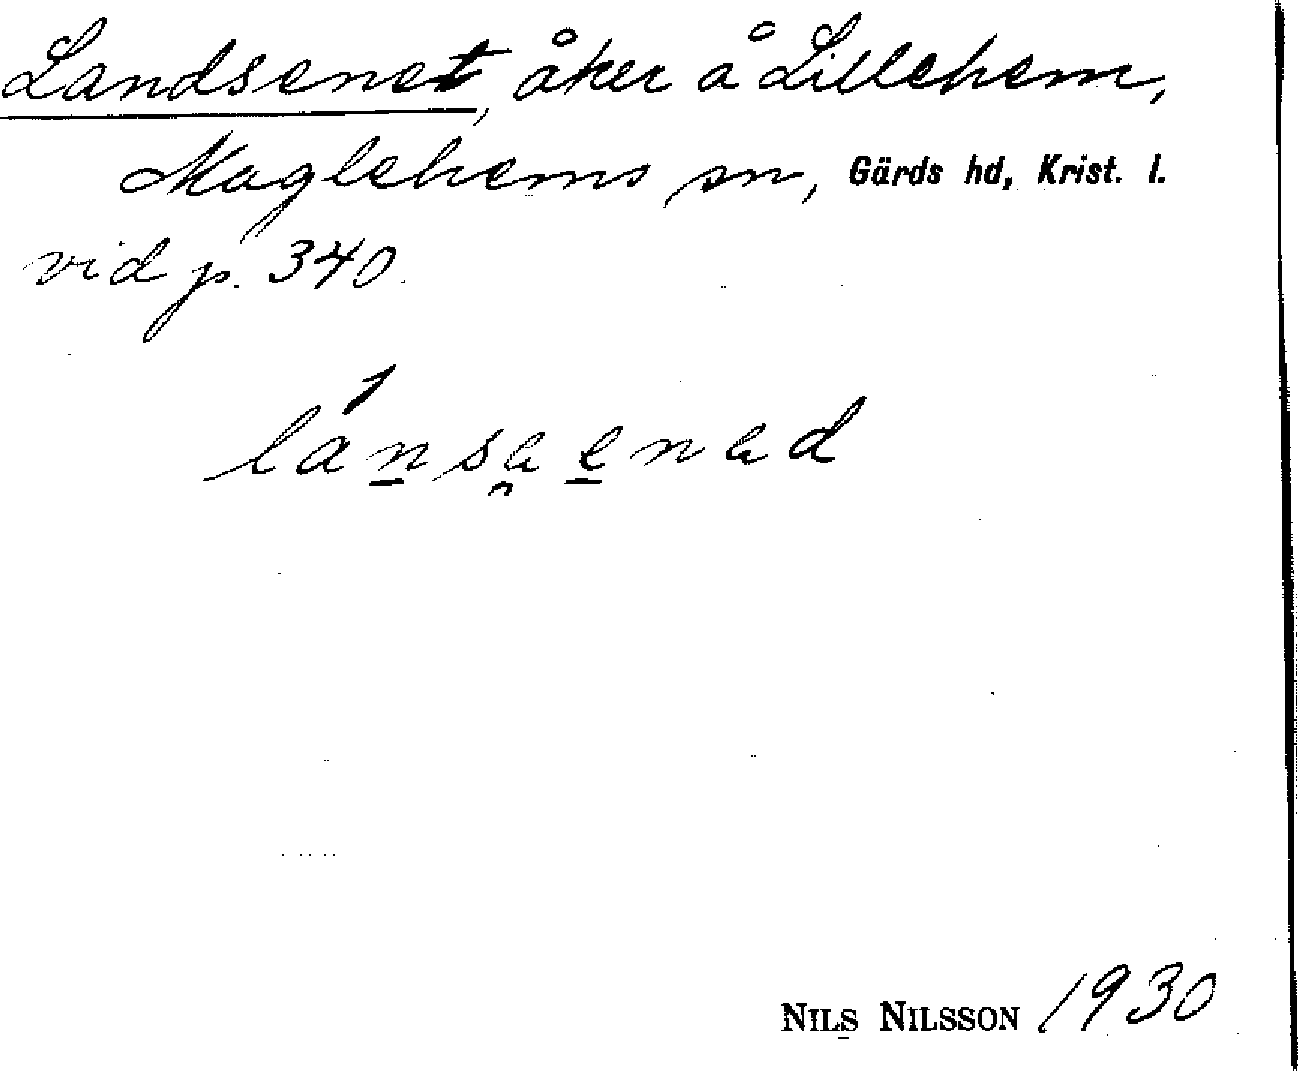 Landsenet, åker å Lillehem,
Maglehems sn, Gärds hd, Krist. l.
vid p. 340.
NILS NILSSON 1930